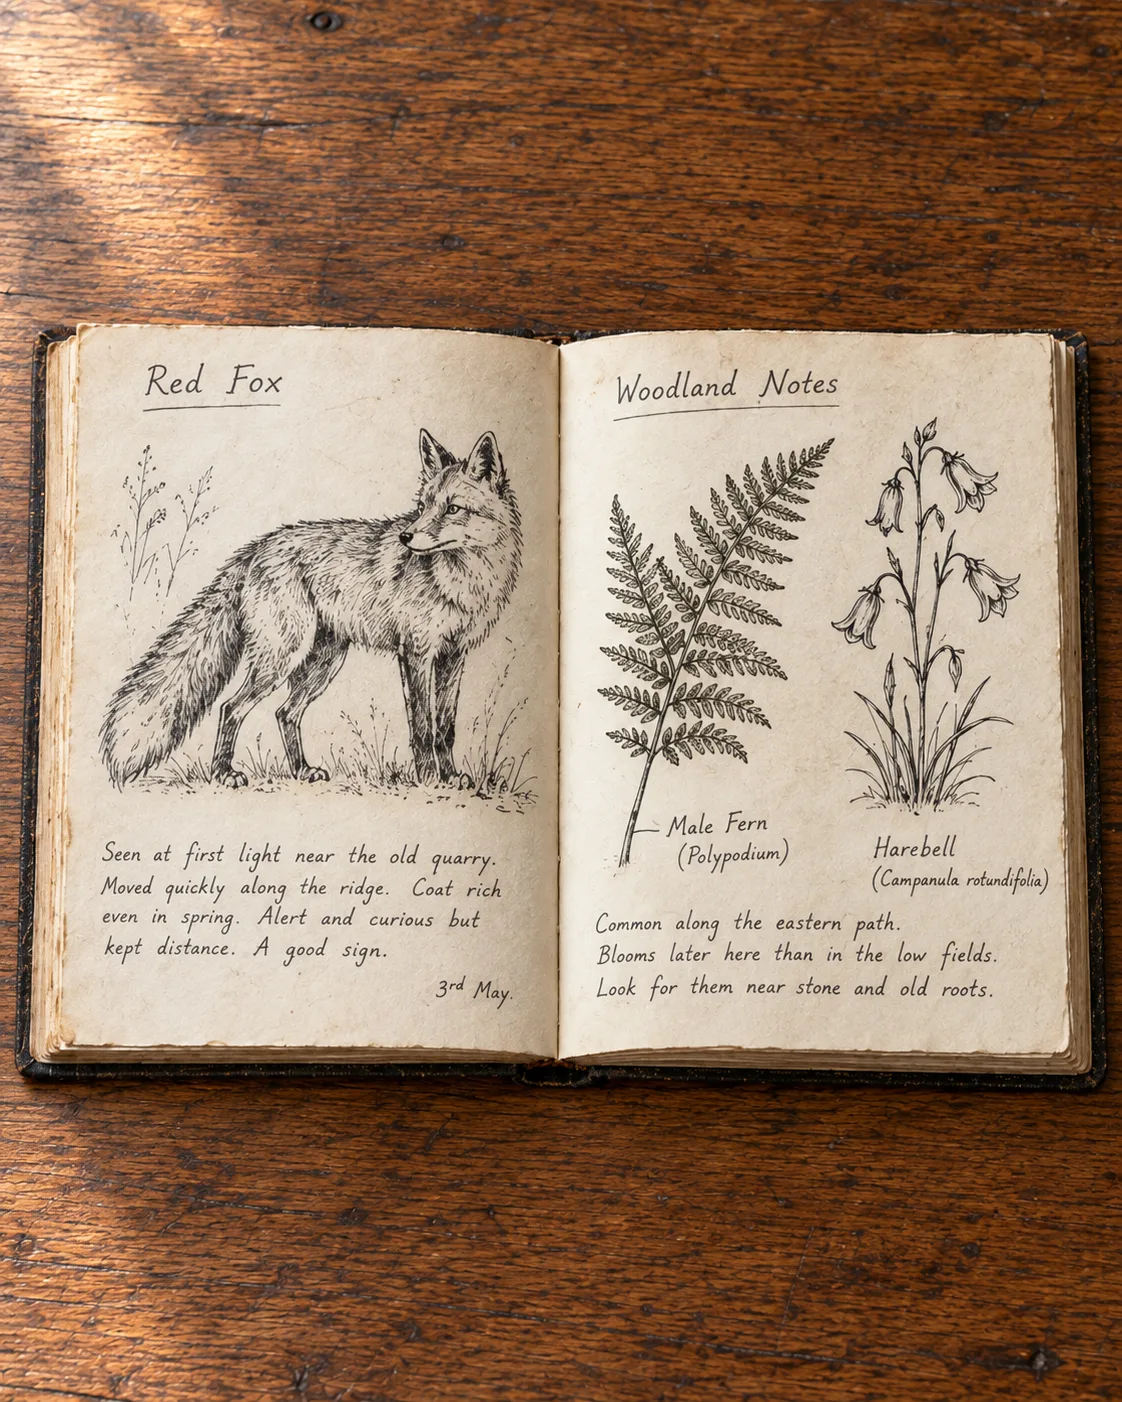 Red Fox
Seen at first light near the old quarry.
Moved quickly along the ridge. Coat rich
even in spring. Alert and curious but
kept distance. A good sign.
3rd May.
Woodland Notes
Male Fern
(Polypodium)
Harebell
(Campanula rotundifolia)
Common along the eastern path.
Blooms later here than in the low fields.
Look for them near stone and old roots.